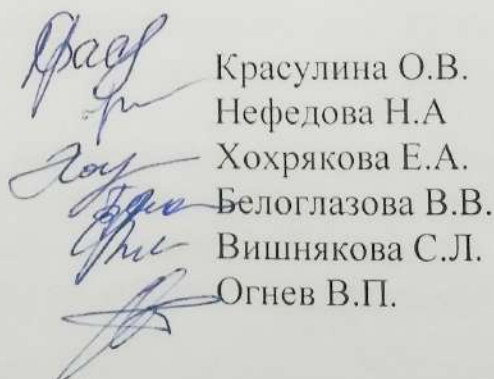 Красулина О.В.
Нефедова Н.А
Хохрякова Е.А.
Белоглазова В.В.
Вишнякова С.Л.
Огнев В.П.